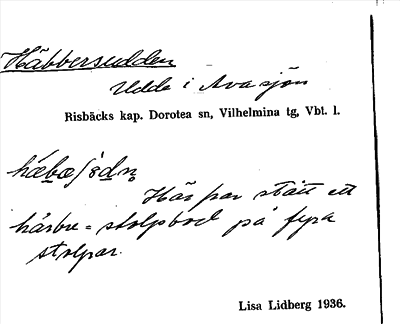 Häbbersudden
Udde i Avasjön
Risbäcks kap. Dorotea sn, Vilhelmina tg, Vbt. l.
Här har stått ett
härbre = stolpbod på fyra
stolpar.
Lisa Lidberg 1936.